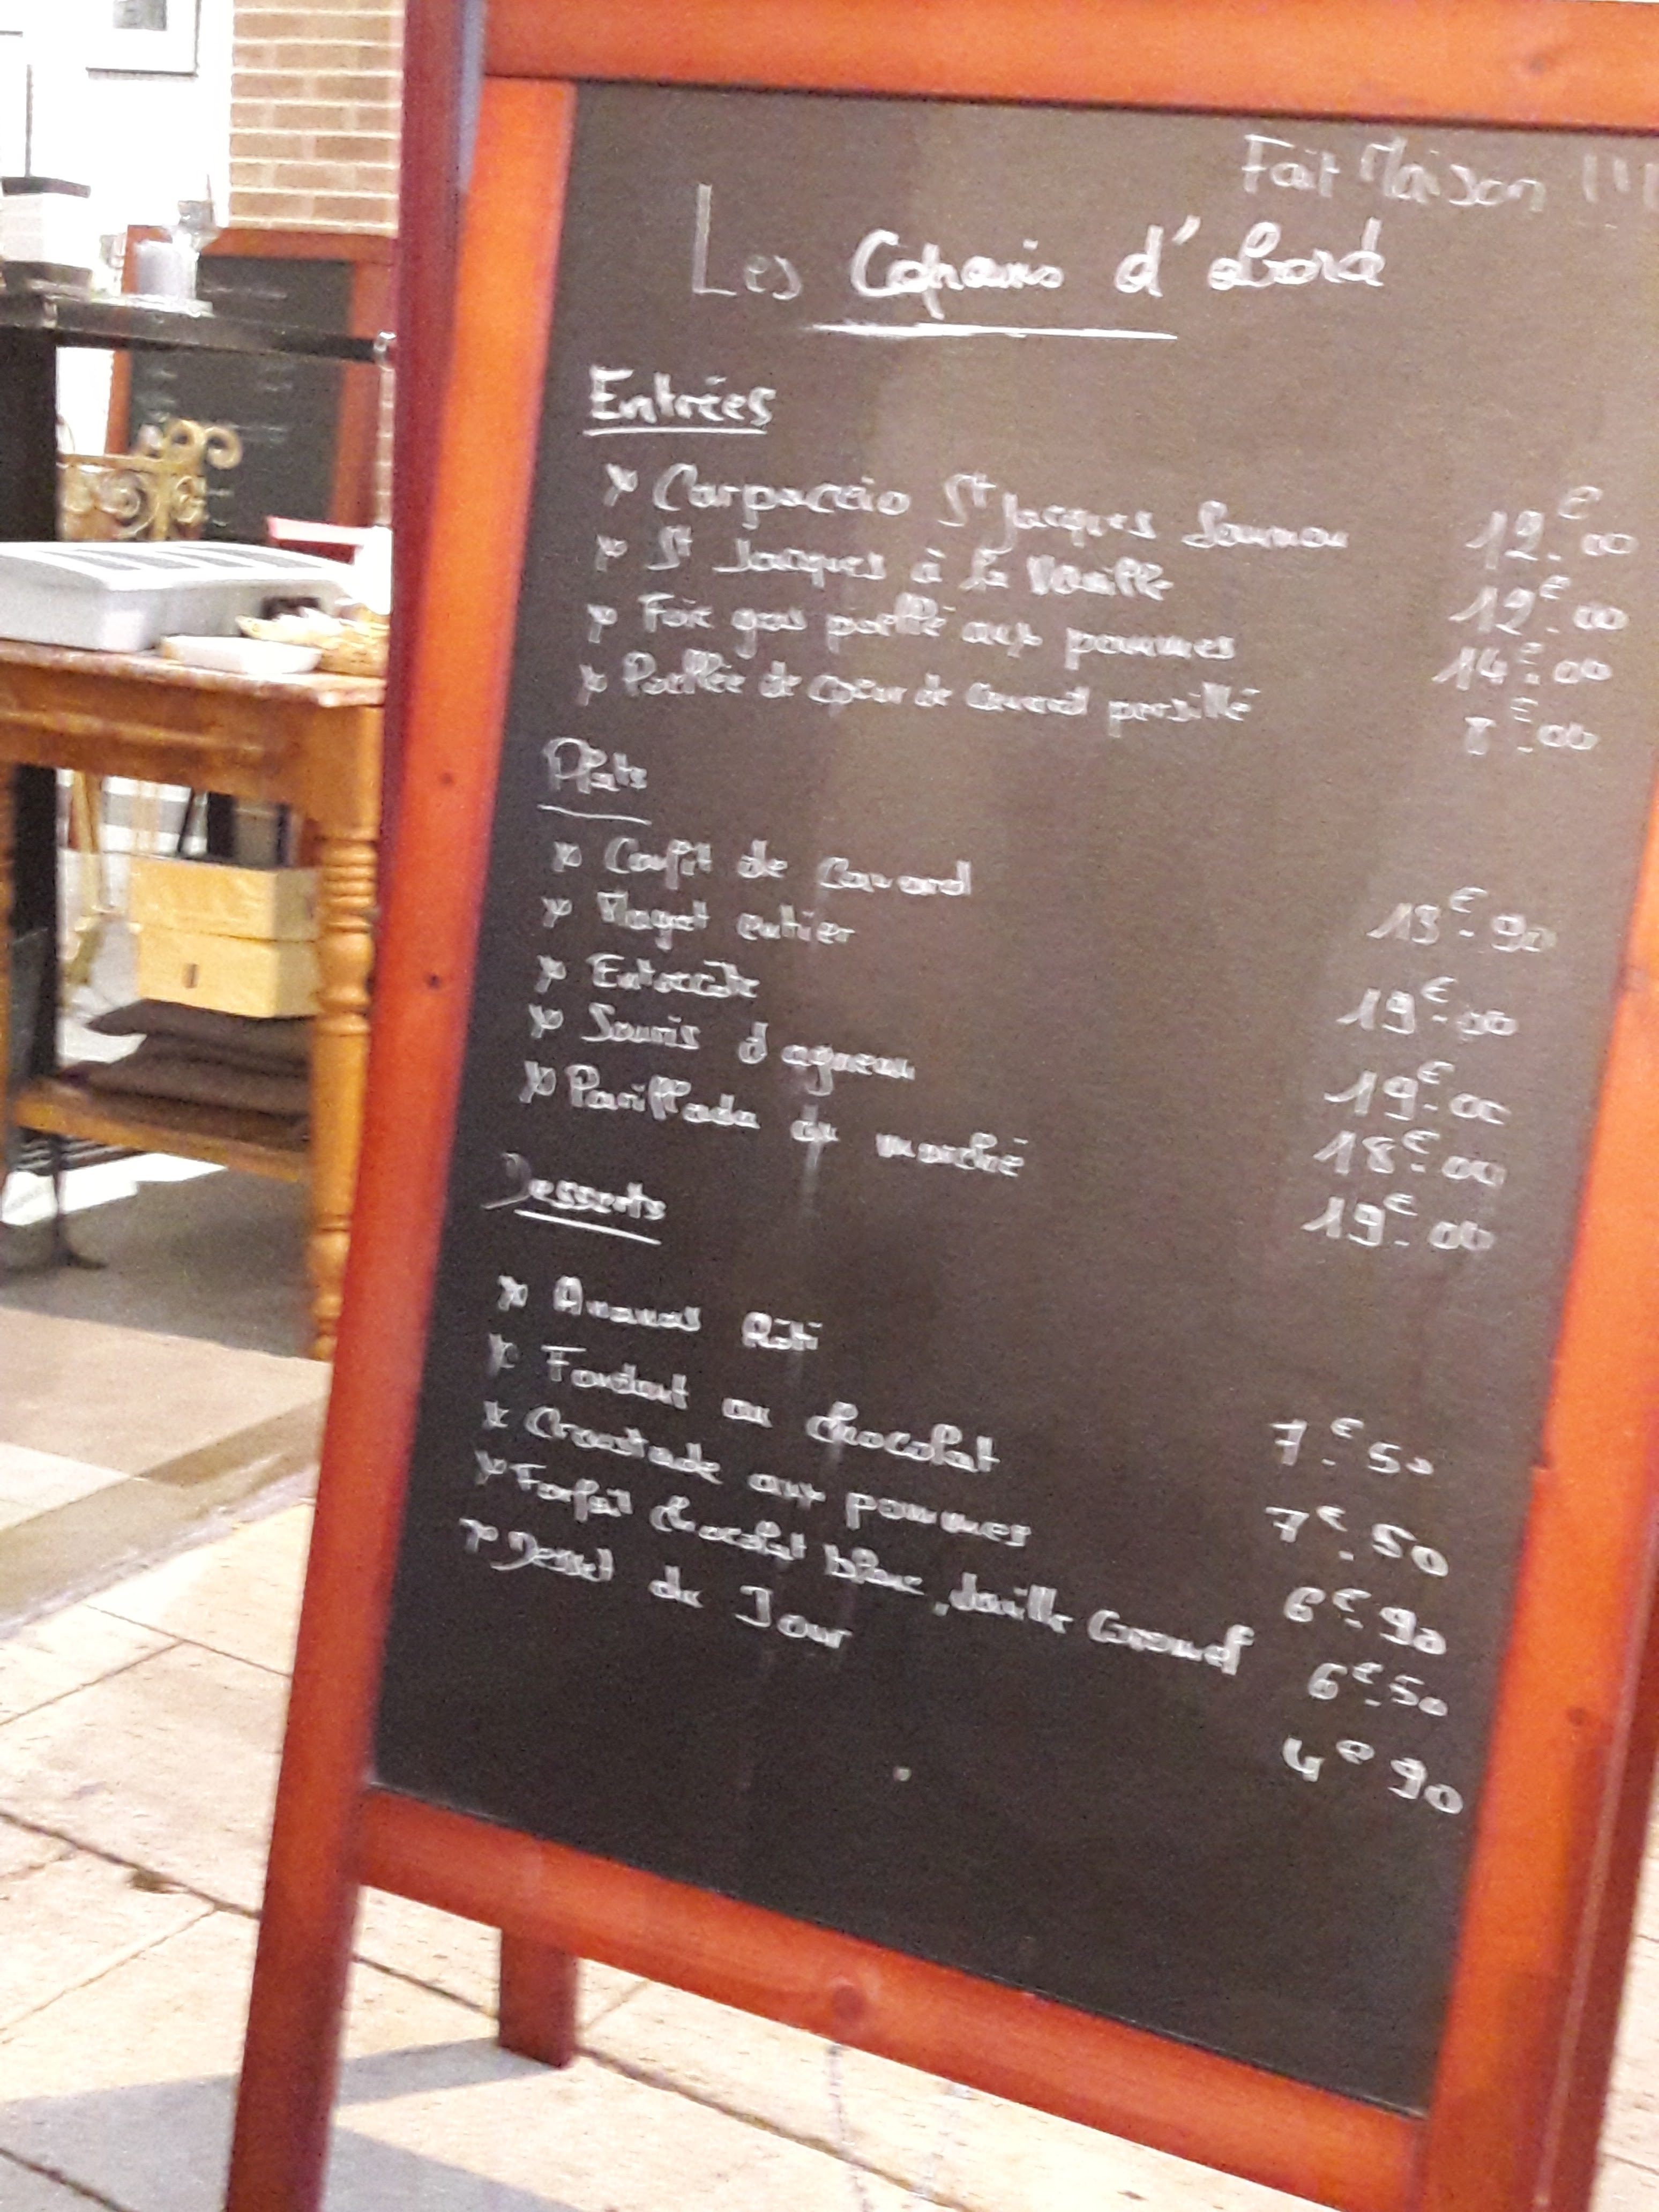 Fait Maison !!!
Les Copains d'abord
Entrées
* Carpaccio St Jacques Saumon 12€.00
* St Jacques à la Vanille 12€.00
* Foie gras poellé aux pommes 14€.00
* Poellée de coeur de canard persillé 8€.00
Plats
* Confit de Canard 13€.90
* Magret entier 19€.00
* Entrecôte 19€.00
* Souris d'agneau 18€.00
* Parillada du marché 19€.00
Desserts
* Ananas Rôti 7€.50
* Fondant au chocolat 7€.50
* Croustade aux pommes 6€.90
* Parfait chocolat blanc, Caramel 6€.50
* Dessert du Jour 4€90